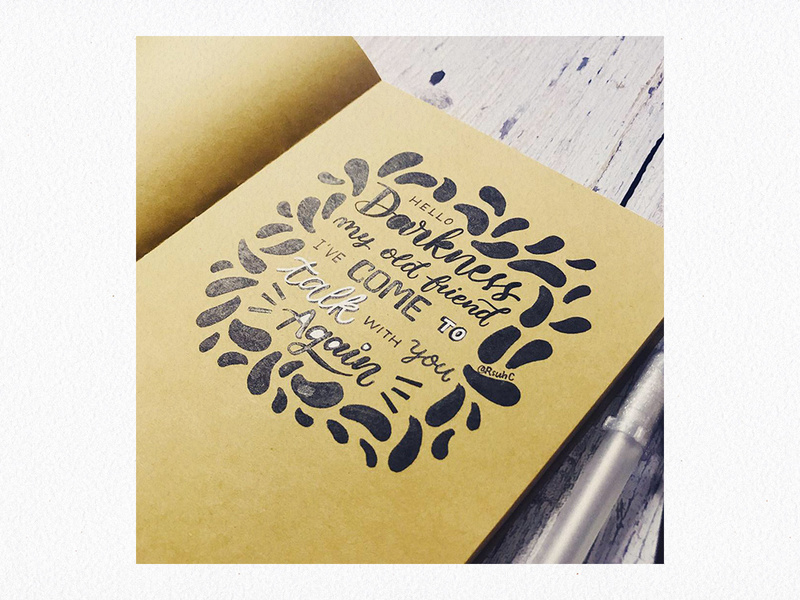 HELLO
Darkness
my old friend
I'VE COME TO
talk WITH you
Again
@RsuhC